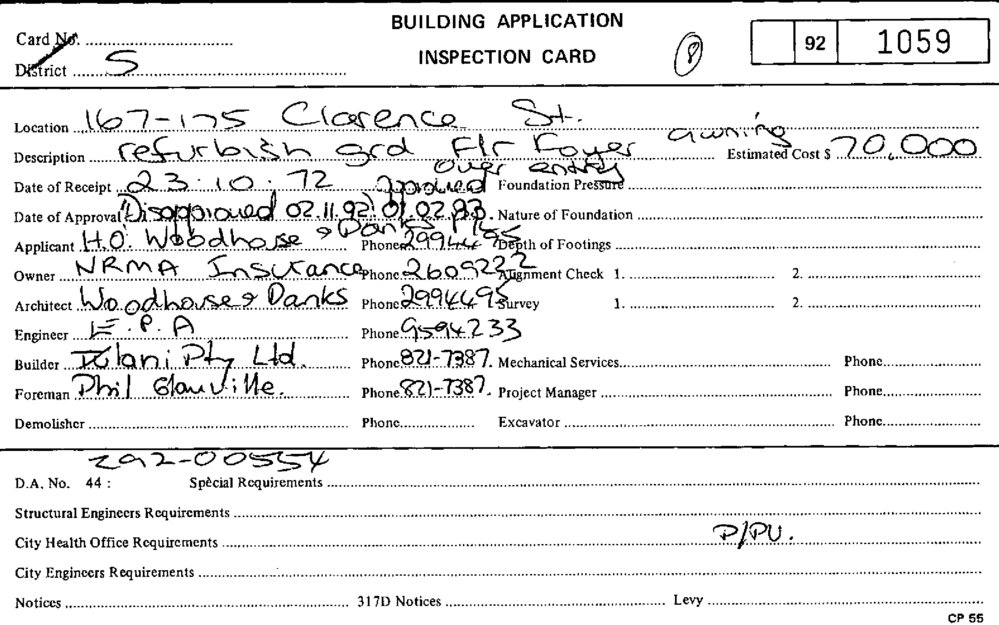 BUILDING APPLICATION
INSPECTION CARD
Card No.
District S
8
92 1059
Location 167-175 Clarence St.
Description refurbish grd Flr Foyer awning over entry Estimated Cost $ 70,000
Date of Receipt 23.10.72 Foundation Pressure
Date of Approval Disapproved 02.11.92 approved 01.02.93. Nature of Foundation
Applicant H.O. Woodhouse & Danks P/L Phone 2994495 Depth of Footings
Owner NRMA Insurance Phone 2609222 Alignment Check 1. 2.
Architect Woodhouse & Danks Phone 2994495 Survey 1. 2.
Engineer E.P.A Phone 9594233
Builder Pty Ltd. Phone 821-7387. Mechanical Services Phone
Foreman Phil Glanville. Phone 821-7387. Project Manager Phone
Demolisher Phone Excavator Phone
Z92-00554
D.A. No. 44 : Special Requirements
Structural Engineers Requirements
City Health Office Requirements P/PU.
City Engineers Requirements
Notices 317D Notices Levy
CP 55